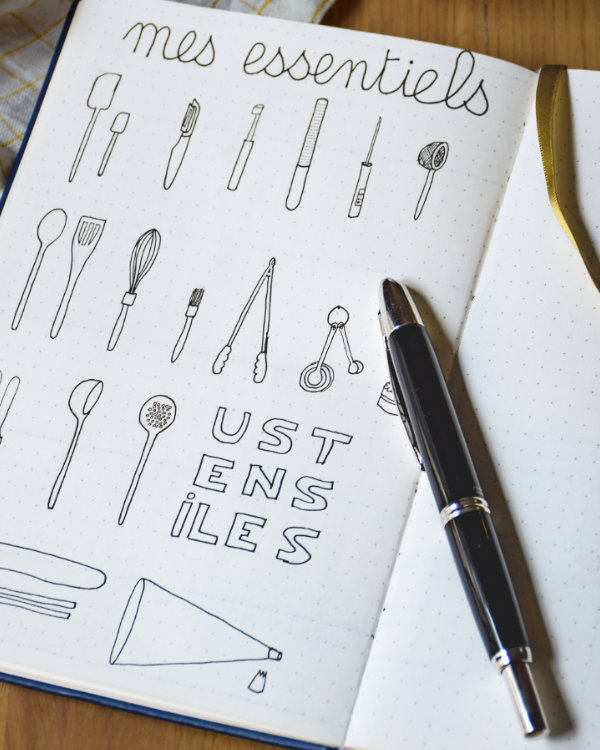 mes essentiels
UST
ENS
iLES